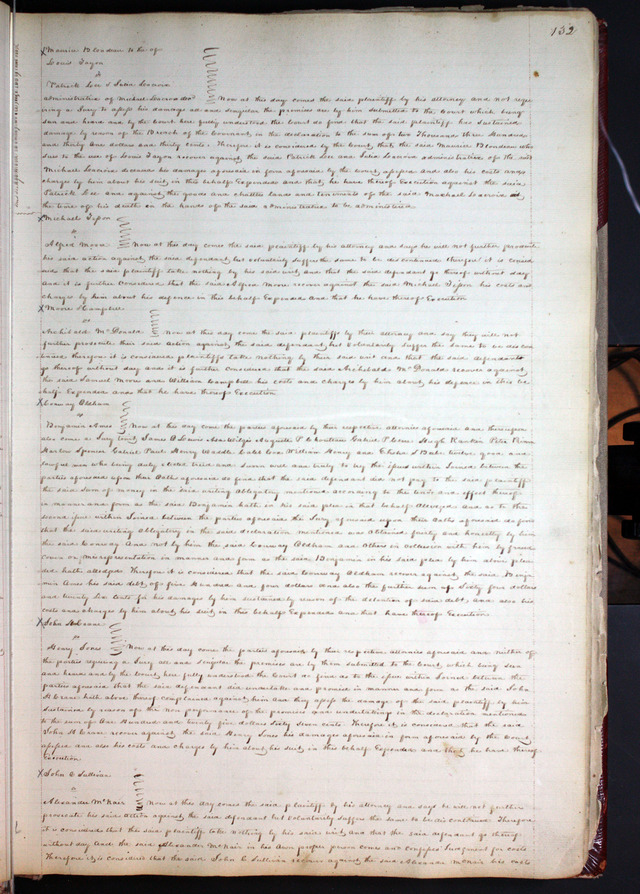 132
X Maurice Blondeau to use of
Louis Tayon
vs
Patrick Lee & Julia
administratrix of Michael decd Now at this day comes the said plaintiff by his attorney and not requi
ring a Jury to assess his damages all and singular the premises are by him submitted to the Court which being
seen and heard and by the Court here fully understood the Court do find that the said plaintiff has sustained
damage by reason of the Breach of the Covenant in the declaration to the sum of two Thousand three Hundred
and thirty nine dollars and thirty cents. Therefore it is considered by the Court, that the said Maurice Blondeau who
sues to the use of Louis Tayon recover against the said Patrick Lee and Julia administratrix of the said
Michael deceased his damages aforesaid in form aforesaid by the Court assessed and also his costs and
charges by him about his suit in this behalf Expended and that he have thereof Execution against the said
Patrick Lee and against the goods and chattels lands and tenements of the said Michael at
the time of his death in the hands of the said administratrix to be administered
X Michael Tesson
vs
Alfred Moore Now at this day comes the said plaintiff by his attorney and says he will not further prosecute
his said action against the said defendant, but voluntarily suffers the same to be discontinued therefore it is consid
ered that the said plaintiff take nothing by his said writ and that the said defendant go thereof without day
and it is further Considered that the said Alfred Moore recover against the said Michael Tesson his costs and
charges by him about his defence in this behalf Expended and that he have thereof Execution
X Moore & Campbell
vs
Archibald McDonald Now at this day come the said plaintiffs by their attorney and say they will not
further prosecute their said action against the said defendant, but Voluntarily suffer the same to be discon
tinued therefore it is considered plaintiffs take nothing by their said writ and that the said defendant
go thereof without day and it is further considered that the said Archibald McDonald recover against
the said Samuel Moore and William Campbell his costs and charges by him about his defence in this be
half Expended and that he have thereof Execution
X Conway Oldham
vs
Benjamin Ames Now at this day come the parties aforesaid by their respective attornies aforesaid and thereupon
also come a Jury towit, James Lewis Asa Wilgus Auguste P. Chouteau Gabriel P. Hugh Rankin Peter Primm
Harlow Spencer Gabriel Paul Henry Waddle Caleb Cox William Henry and Elisha S Bebee twelve good and
lawful men who being duly elected tried and sworn well and truly to try the issues within Joined between the
parties aforesaid upon their Oaths aforesaid do find that the said defendant did not pay to the said plaintiff
the said Sum of money in the said writing obligatory mentioned according to the tenor and effect thereof
in manner and form as the said Benjamin hath in his said plea in that behalf Alledged and as to the
second issue within Joined between the parties aforesaid the Jury aforesaid upon their Oaths aforesaid do find
that the said writing Obligatory in the said declaration mentioned was obtained fairly and honestly by him
the said Conway And not by him the said Conway Oldham and Others in collusion with him by fraud
covin or misrepresentation in manner and form as the said Benjamin in his said plea by him above plead
ed hath alledged Therefore it is considered that the said Conway Oldham recover against the said Benja
min Ames his said debt of five Hundred and four dollars and also the further sum of Sixty four dollars
and twenty Six Cents for his damages by him sustained by reason of the detention of said debt, and also his
costs and charges by him about his suit in this behalf Expended and that have thereof Execution
X John H Crane
vs
Henry Jones Now at this day come the parties aforesaid by their respective attornies aforesaid and neither of
the parties requiring a Jury all and singular the premises are by them submitted to the Court, which being seen
and heard and by the Court here fully understood the Court do find as to the issue within Joined between the
parties aforesaid that the said defendant did undertake and promise in manner and form as the said John
H Crane hath above thereof complained against him and they assess the damage of the said plaintiff by him
sustained by reason of the non performance of the promises and undertakings in the declaration mentioned
to the sum of One Hundred and twenty five dollars Sixty Seven cents. Therefore it is considered that the said
John H Crane recover against the said Henry Jones his damages aforesaid in form aforesaid by the Court
assessed and also his costs and charges by him about his suit in this behalf Expended and that he have thereof
Execution
X John C Sullivan
vs
Alexander McNair Now at this day comes the said plaintiff by his attorney and says he will not further
prosecute his said action against the said defendant but voluntarily suffers the same to be discontinued Therefore
it is considered that the said plaintiff take nothing by his said writ and that the said defendant go thereof
without day And the said Alexander McNair in his own proper person comes and confesses Judgment for costs
Therefore it is considered that the said John C Sullivan recover against the said Alexander McNair his costs